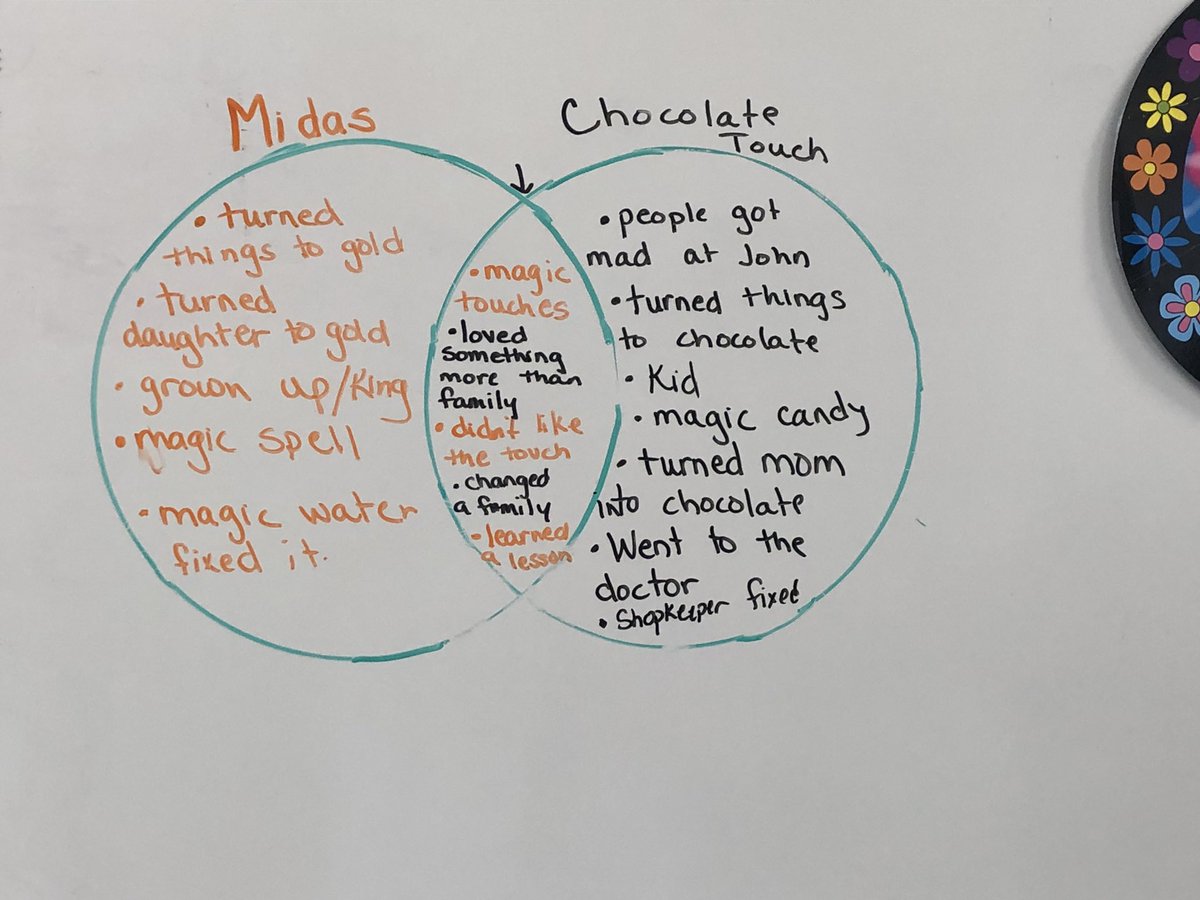 Midas
• turned
things to gold
• turned
daughter to gold
• grown up/King
• magic spell
• magic water
fixed it.
• magic
touches
• loved
something
more than
family
• didn't like
the touch
• changed
a family
• learned
a lesson
Chocolate
Touch
• people got
mad at John
• turned things
to chocolate
• Kid
• magic candy
• turned mom
into chocolate
• Went to the
doctor
• Shopkeeper fixed